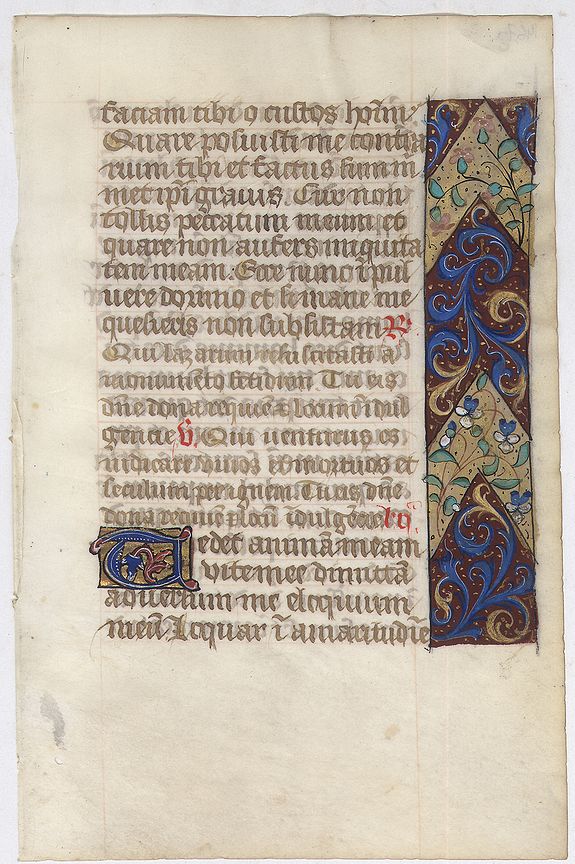 faciam tibi o custos hoĩm
Quare posuisti me contra
rium tibi et factus sum m
met ipi gravis. Cur non
tollis peccatum meum et
quare non aufers iniquita
tem meam. Ecce nunc ĩ pul
uere dormio et si mane me
quesieris non subsistam R
Qui lazarum resuscitasti a
monumẽto fetidum. Tu eis
dñe dona requiẽ et locum idul
gencie V Qui uenturus es
iudicare viuos et mortuos et
seculum per ignem. Tu eis dñe
dona requiẽ et locũ idulgẽcie lcõ
Tedet animam meam
vite mee dimittã
aduersum me eloquium
meũ loquar ĩ amaritudĩe